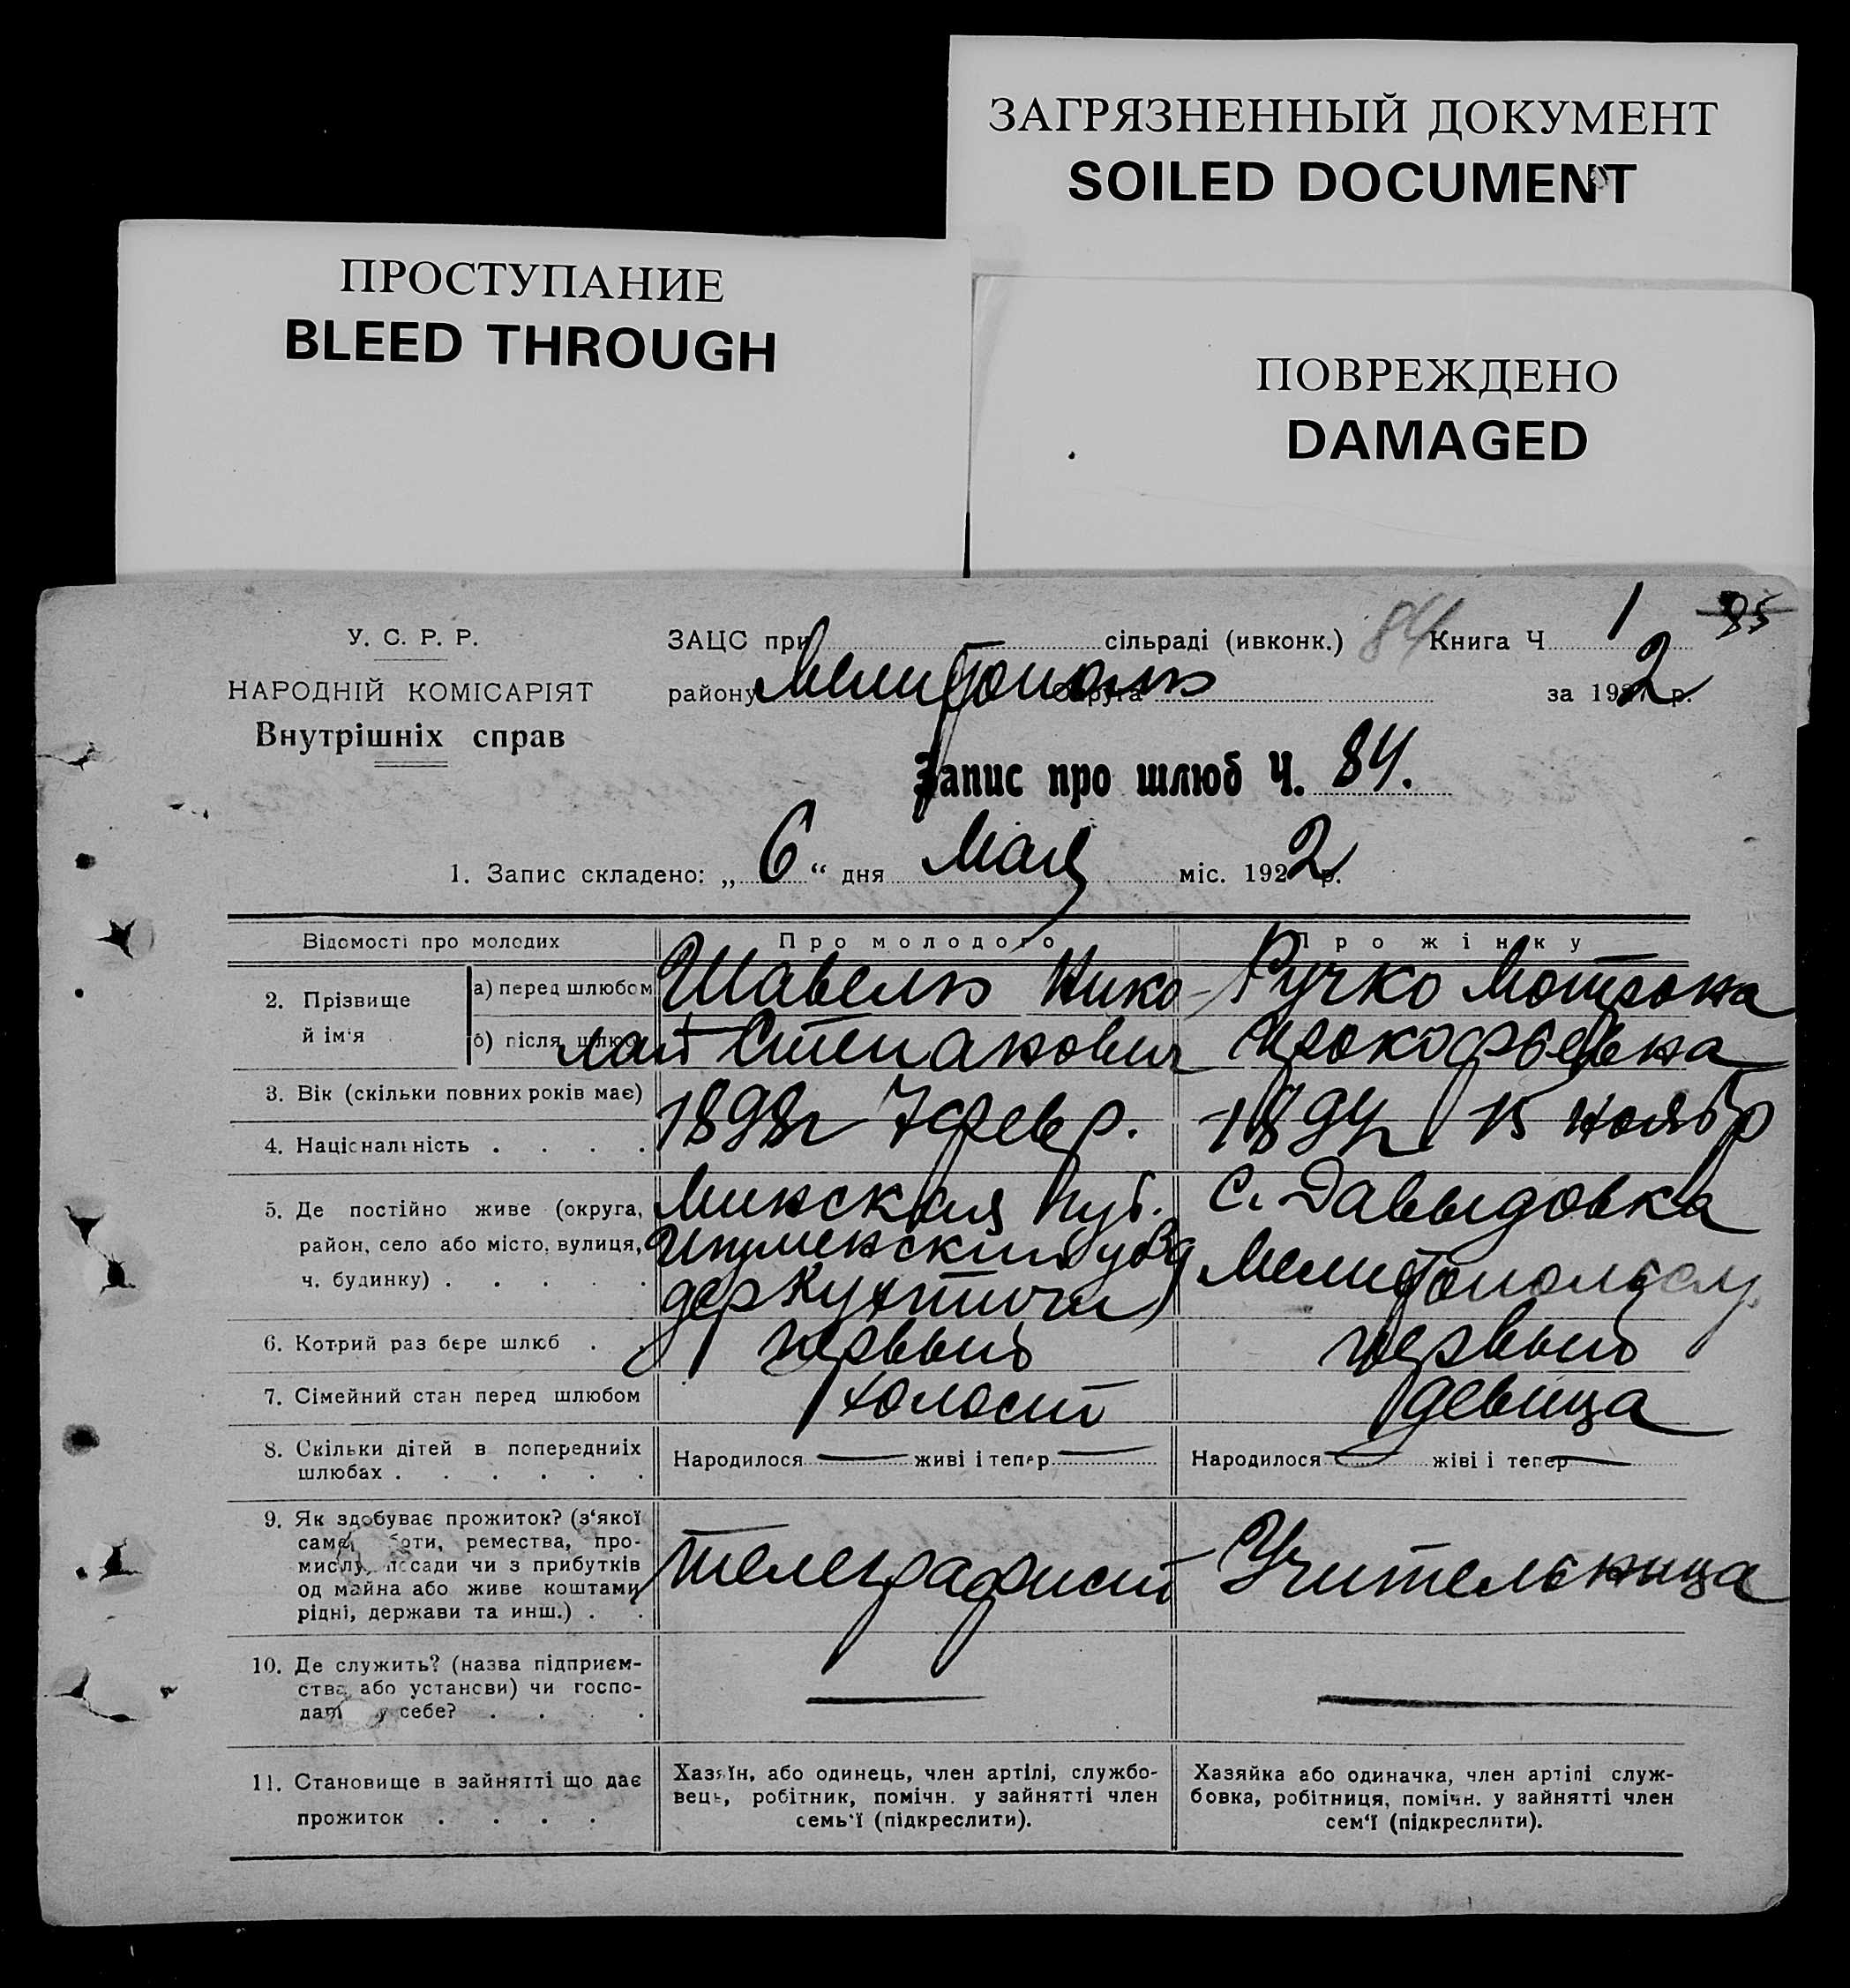 ЗАГРЯЗНЕННЫЙ ДОКУМЕНТ
SOILED DOCUMENT
ПРОСТУПАНИЕ
BLEED THROUGH
ПОВРЕЖДЕНО
DAMAGED
У. С. Р. Р.
НАРОДНІЙ КОМІСАРІЯТ
Внутрішніх справ
ЗАЦС при сільраді (ивконк.) 84 Книга Ч 1 85
району Мелитополь округа за 1922 р.
Запис про шлюб Ч. 84.
1. Запис складено: „ 6 “ дня Мая міс. 1922 р.
Відомості про молодих Про молодого Про жінку
2. Прізвище й ім'я а) перед шлюбом Шавель Нико- Ручко Мотрона
б) після шлюб лай Степанович Прокофьевна
3. Вік (скільки повних років має)
4. Національність . . . . 1898 г 7 февр. 15 ноябр
5. Де постійно живе (округа, Минская Губ. С. Давыдовка
район, село або місто, вулиця, Игуменский уезд Мелитопольск у.
ч. будинку) . . . . . дер
6. Котрий раз бере шлюб . . первый первый
7. Сімейний стан перед шлюбом холост девица
8. Скільки дітей в попередниіх Народилося — живі і тепер — Народилося — жіві і тепер —
шлюбах . . . . . .
9. Як здобуває прожиток? (з'якої
саме роботи, ремества, про-
мислу, посади чи з прибутків телеграфист Учительница
од майна або живе коштами
рідні, держави та инш.) . .
10. Де служить? (назва підприєм-
ства або установи) чи госпо-
дар у себе? . . . . — —
11. Становище в зайнятті що дає
прожиток . . . .
Хазяїн, або одинець, член артілі, службо-
вець, робітник, помічн. у зайнятті член
семь'ї (підкреслити).
Хазяйка або одиначка, член артілі служ-
бовка, робітниця, помічн. у зайнятті член
сем'ї (підкреслити).